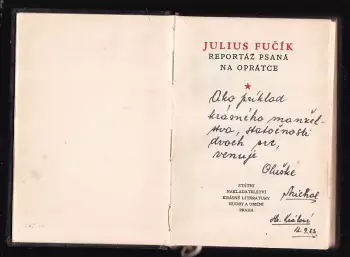 JULIUS FUČÍK
REPORTÁŽ PSANÁ
NA OPRÁTCE
Ako príklad
krásného manžel-
stva, statočnosti
dvoch sŕc,
venuje
Oluške
STÁTNÍ
NAKLADATELSTVÍ
KRÁSNÉ LITERATURY
HUDBY A UMĚNÍ
PRAHA
Michal
Hr. Králové